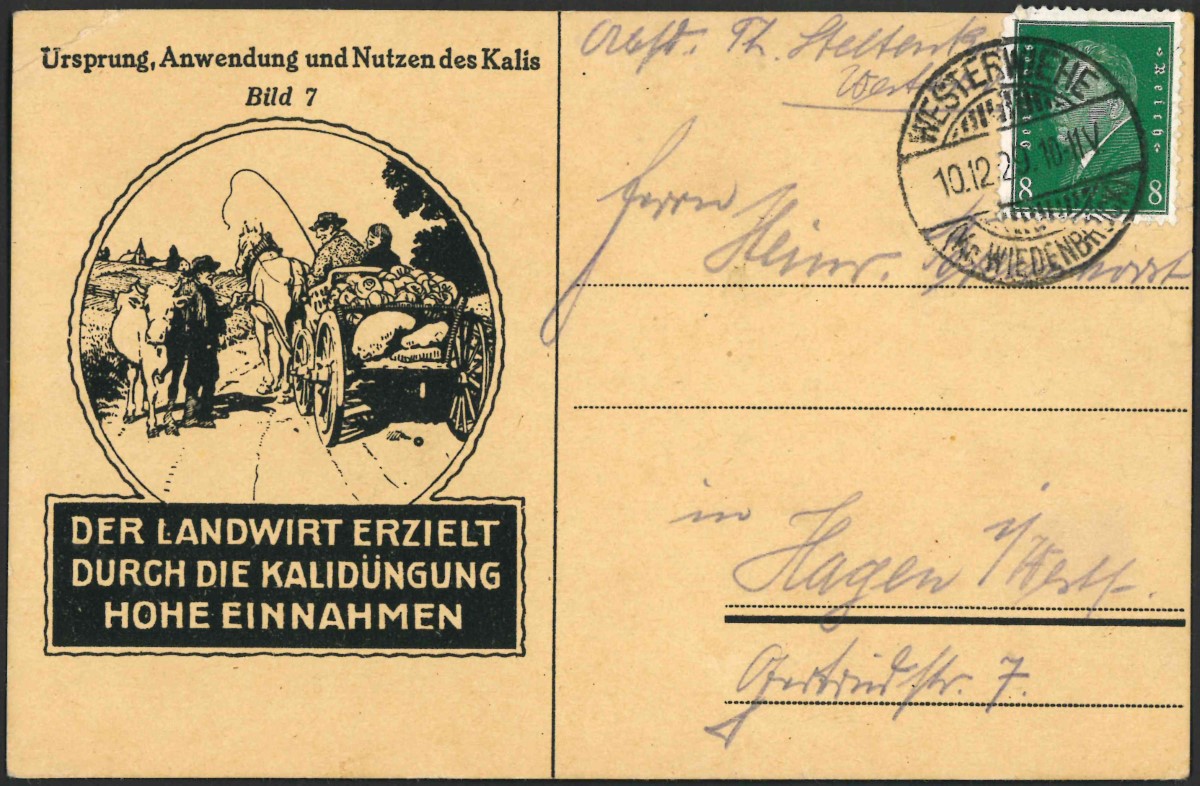 Ursprung, Anwendung und Nutzen des Kalis
Bild 7
DER LANDWIRT ERZIELT
DURCH DIE KALIDÜNGUNG
HOHE EINNAHMEN
Absd. Th.
West
Reich
8 8
WESTERWIEHE
10.12.29. 10-11V.
WIEDENBR
Herrn
Heinr.
in
Hagen i/Westf.
Gertrudstr. 7.